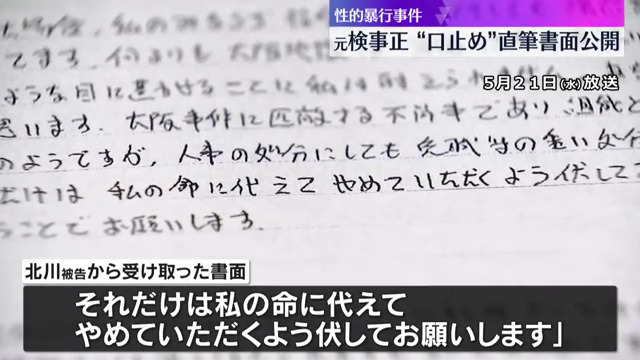 性的暴行事件
元検事正 “口止め”直筆書面公開
5月21日(水)放送
てます。何よりも大阪地
ような目に遭わせることに私は
思います。大阪事件に匹敵する不祥事であり
のようですが、人事の処分にしても免職
だけは 私の命に代えて やめていただくよう伏して
ことで お願いします。
北川被告から受け取った書面
それだけは私の命に代えて
やめていただくよう伏してお願いします」